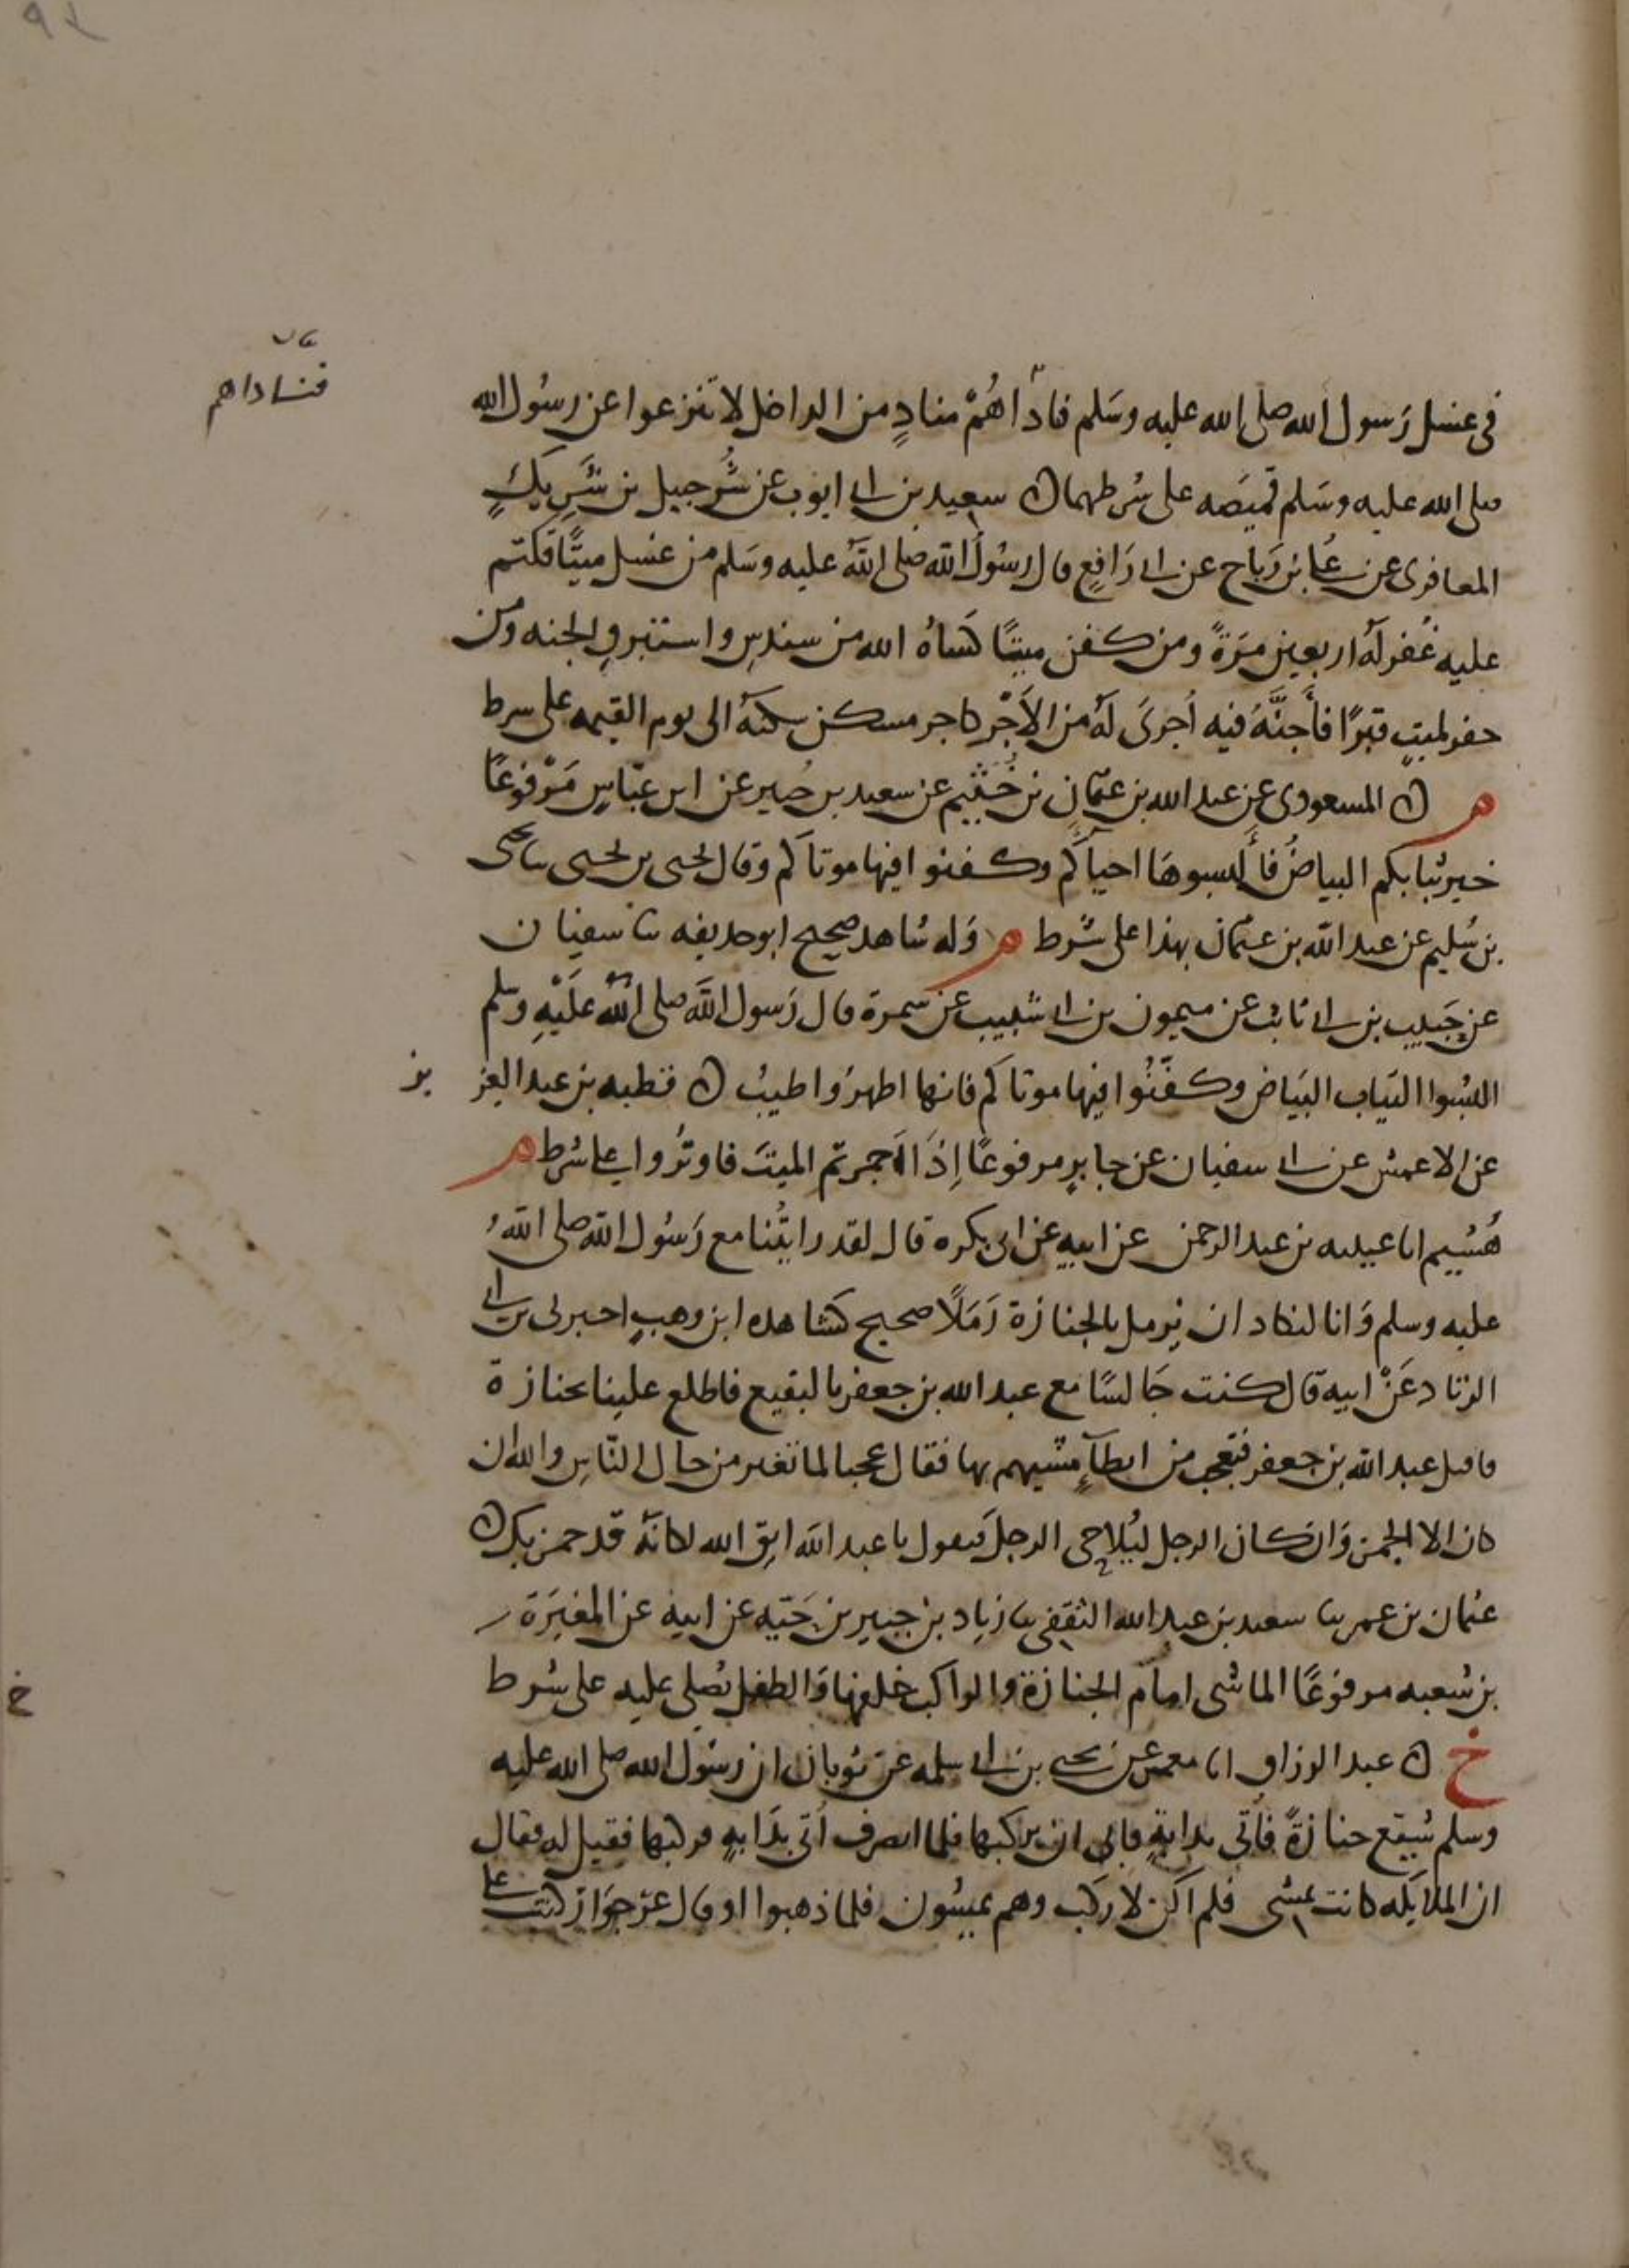 فناداهم
في غسل رَسول الله صلى الله عليه وسَلم فاداهُمْ منادٍ من الداخل لا تنزعوا عن رسُول الله
صلى الله عليه وسَلم قميصَه على شرطهما ۞ سعيد بن ابي ايوب عن شُرَحبيل بن شَرِيكٍ
المعافرى عن عُلي بن رَباح عن ابي رَافِعٍ قال رسُول الله صلى اللهُ عليه وسَلم من غسل ميتًا فكتم
عليه غُفر لهُ اربعين مَرَةً ومن كفن ميتًا كسَاهُ الله من سندسٍ واستبرق الجنه ومن
حفر لميتٍ قبرًا فأجَنَّهُ فيه اُجرىَ لهُ من الأَجْرِ كاجر مسكن سكنهُ الى يوم القيمه على شرط
م ۞ المسعودى عن عبد الله بن عثمان بن خُثَيم عن سعيد بن جبير عن ابن عبّاسٍ مَرْفوعًا
خير ثيابكم البياضُ فألبسوهَا احياكم وكفنوا فيها موتاكم وقال يحيى بن يحيى ثنا يحيى
بن سُليم عن عبد الله بن عثمان بهذا على شرط م وَله شاهد صحيح ابو حديفه ثنا سفيان
عن حَبيب بن ابي ثابت عن ميمون بن ابي شبيب عن سمرة قال رَسول الله صلى اللهُ عَلَيْهِ وسلم
البسُوا الثياب البَياض وكفّنُوا فيها موتاكم فانها اطهرُ واطيبُ ۞ قطبه بن عبد العزيز
عن الاعمش عن ابي سفيان عن جابرٍ مرفوعًا إذَا اجمرتم الميتَ فاوتروا على شرط م
هُشيم انا عيينه بن عبد الرحمن عن ابيه عن ابى بكره قال لقد رايتُنا مع رَسُول الله صلى اللهُ
عليه وسلم وَانا لنكاد ان نرمل بالجنازة رَمَلًا صحيح كشاهده ابن وهبٍ اخبرنى بن ابي
الزناد عَنْ ابيه قال كنت جَالسًا مع عبد الله بن جعفر بالبقيع فاطلع علينا بجنازة
فاقبل عبد الله بن جعفر فتعجب من ابطآءِ مشيهم بها فقال عجبا لما تغير من حال النّاسِ والله ان
كان الا الجمز وَان كان الرجل ليُلاحى الرجلَ فيقول يا عبد الله اتق الله لكانهُ قد جمز بك ۞
عثمان بن عمر ثنا سعيد بن عبيد الله الثقفى ثنا زياد بن جبير بن حَيّه عن ابيه عن المغيرَة
بن شُعبه مرفوعًا الماشى امام الجنازة والراكب خلفها وَالطفل يُصلى عليه على شرط
خ ۞ عبد الرزاق انا معمر عن يحيى بن ابي سلمه عن ثوبان ان رسُول الله صلى الله عليه
وسلم شيّع جنازةً فأتى بدابةٍ فابى ان يركبها فلما انصرف اُتى بدَابةٍ فركبها فقيل له فقال
ان الملايكه كانت تمشى فلم اكن لاركب وهم يمشون فلما ذهبوا او قال عرجوا ركبت على
خ